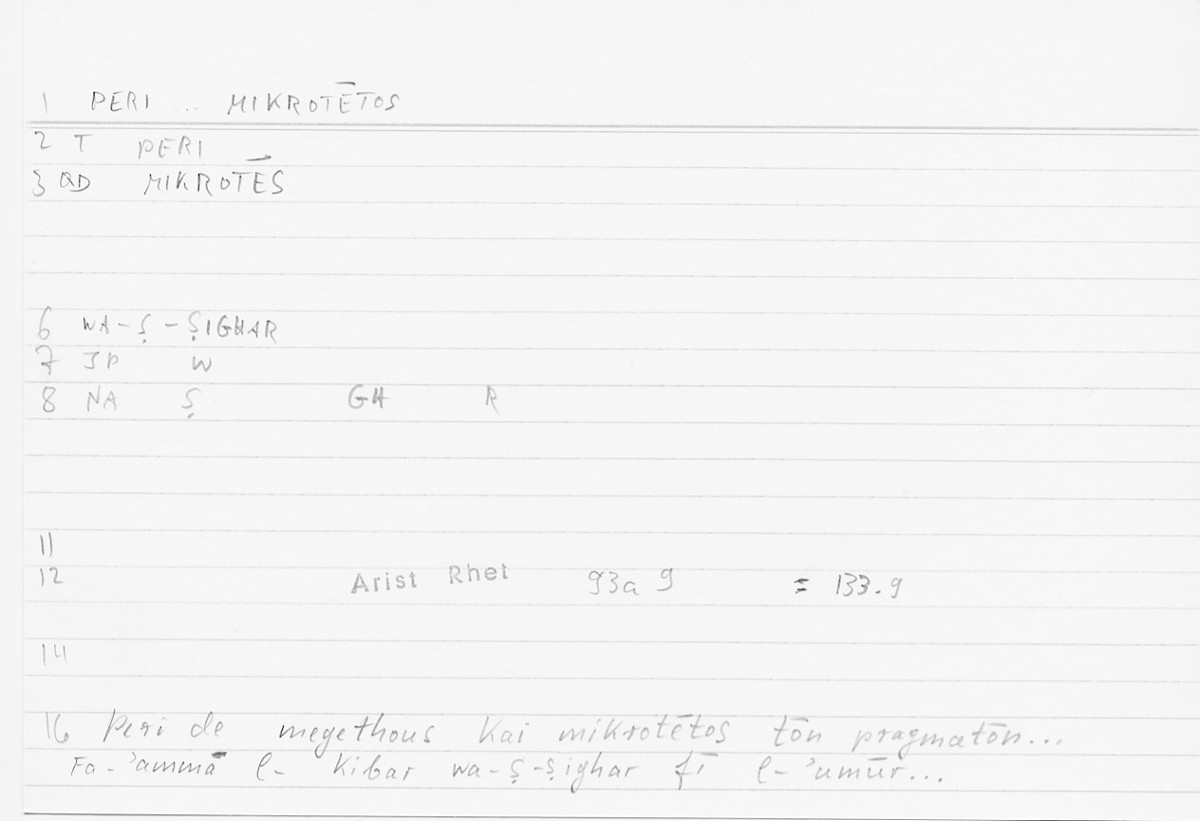 1 PERI ... MIKROTĒTOS
2 T PERI
3 QD MIKROTĒS
6 WA-Ṣ-ṢIGHAR
7 JP W
8 NA Ṣ GH R
11
12 Arist Rhet 93a 9 = 133.9
14
16 Peri de megethous kai mikrotētos tōn pragmatōn...
Fa-'ammā l- kibar wa-ṣ-ṣighar fī l-'umūr...